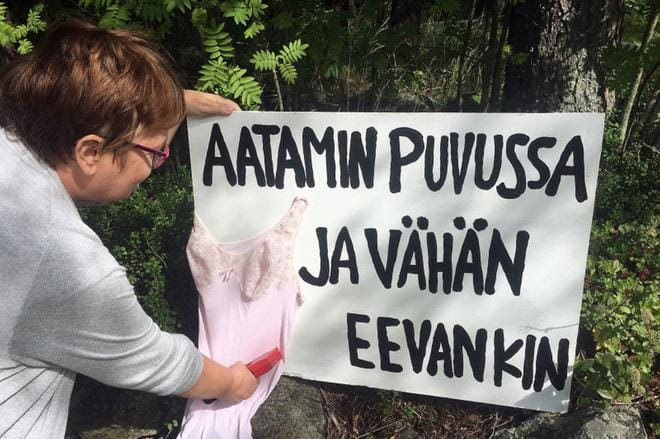 AATAMIN PUVUSSA
JA VÄHÄN
EEVANKIN